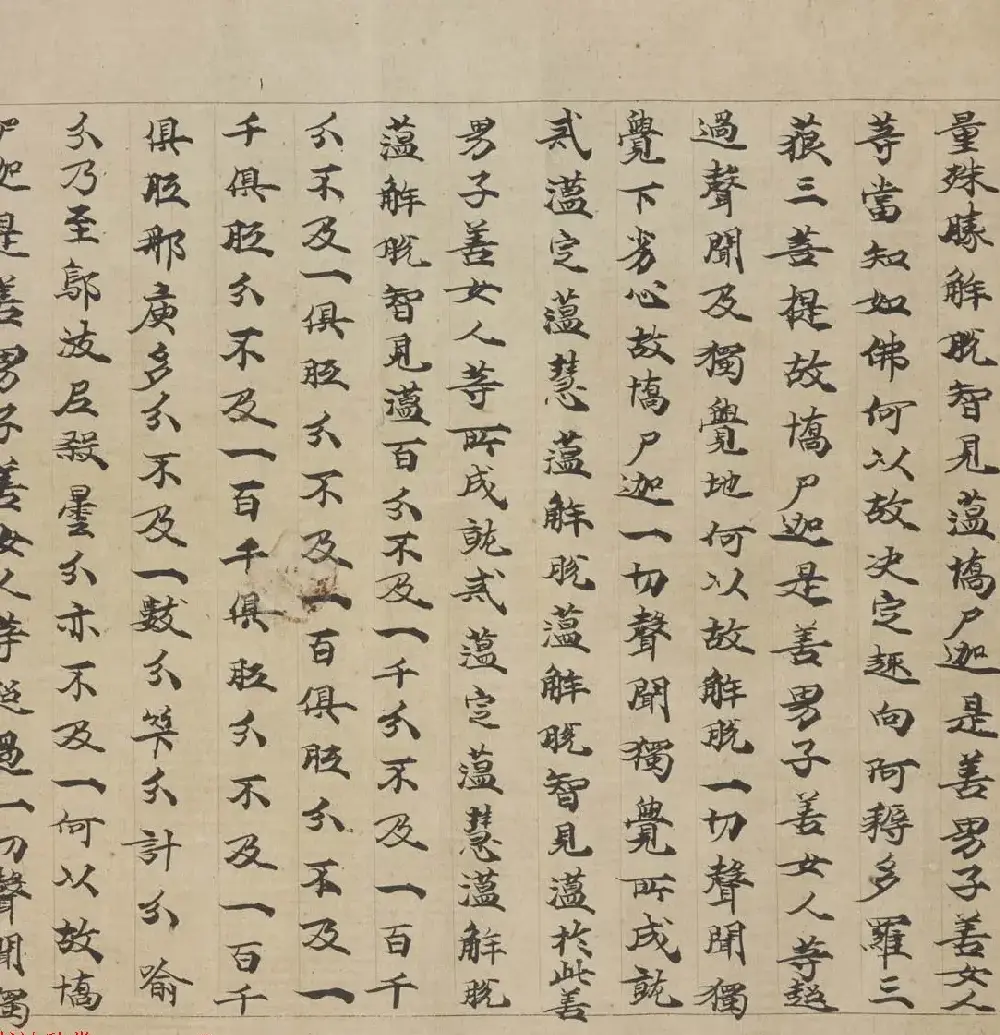 量殊勝解脫智見蘊憍尸迦是善男子善女人
等當知如佛何以故决定趣向阿耨多羅三
藐三菩提故憍尸迦是善男子善女人等超
過聲聞及獨覺地何以故解脫一切聲聞獨
覺下劣心故憍尸迦一切聲聞獨覺所成就
戒蘊定蘊慧蘊解脫蘊解脫智見蘊於此善
男子善女人等所成就戒蘊定蘊慧蘊解脫
蘊解脫智見蘊百分不及一千分不及一百千
分不及一俱胝分不及一百俱胝分不及一
千俱胝分不及一百千俱胝分不及一百千
俱胝那庾多分不及一數分筭分計分喻
分乃至鄔波尼殺曇分亦不及一何以故憍
尸迦是善男子善女人等超過一切聲聞獨